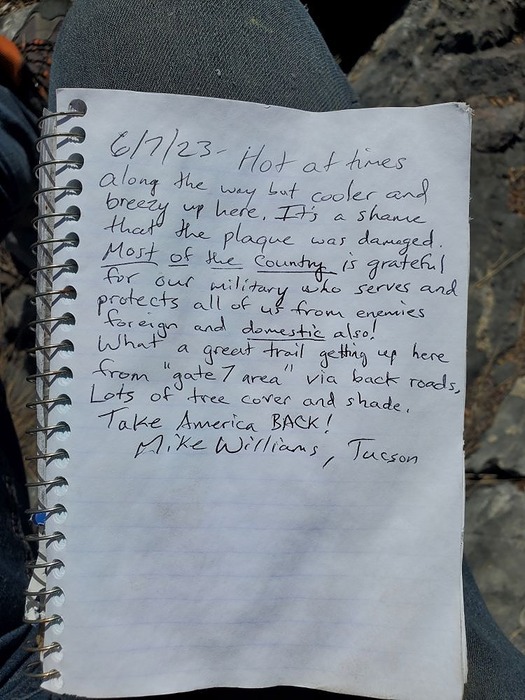 6/7/23- Hot at times
along the way but cooler and
breezy up here. It's a shame
that the plaque was damaged.
Most of the Country is grateful
for our military who serves and
protects all of us from enemies
foreign and domestic also!
What a great trail getting up here
from "gate 7 area" via back roads,
Lots of tree cover and shade.
Take America BACK!
Mike Williams, Tucson